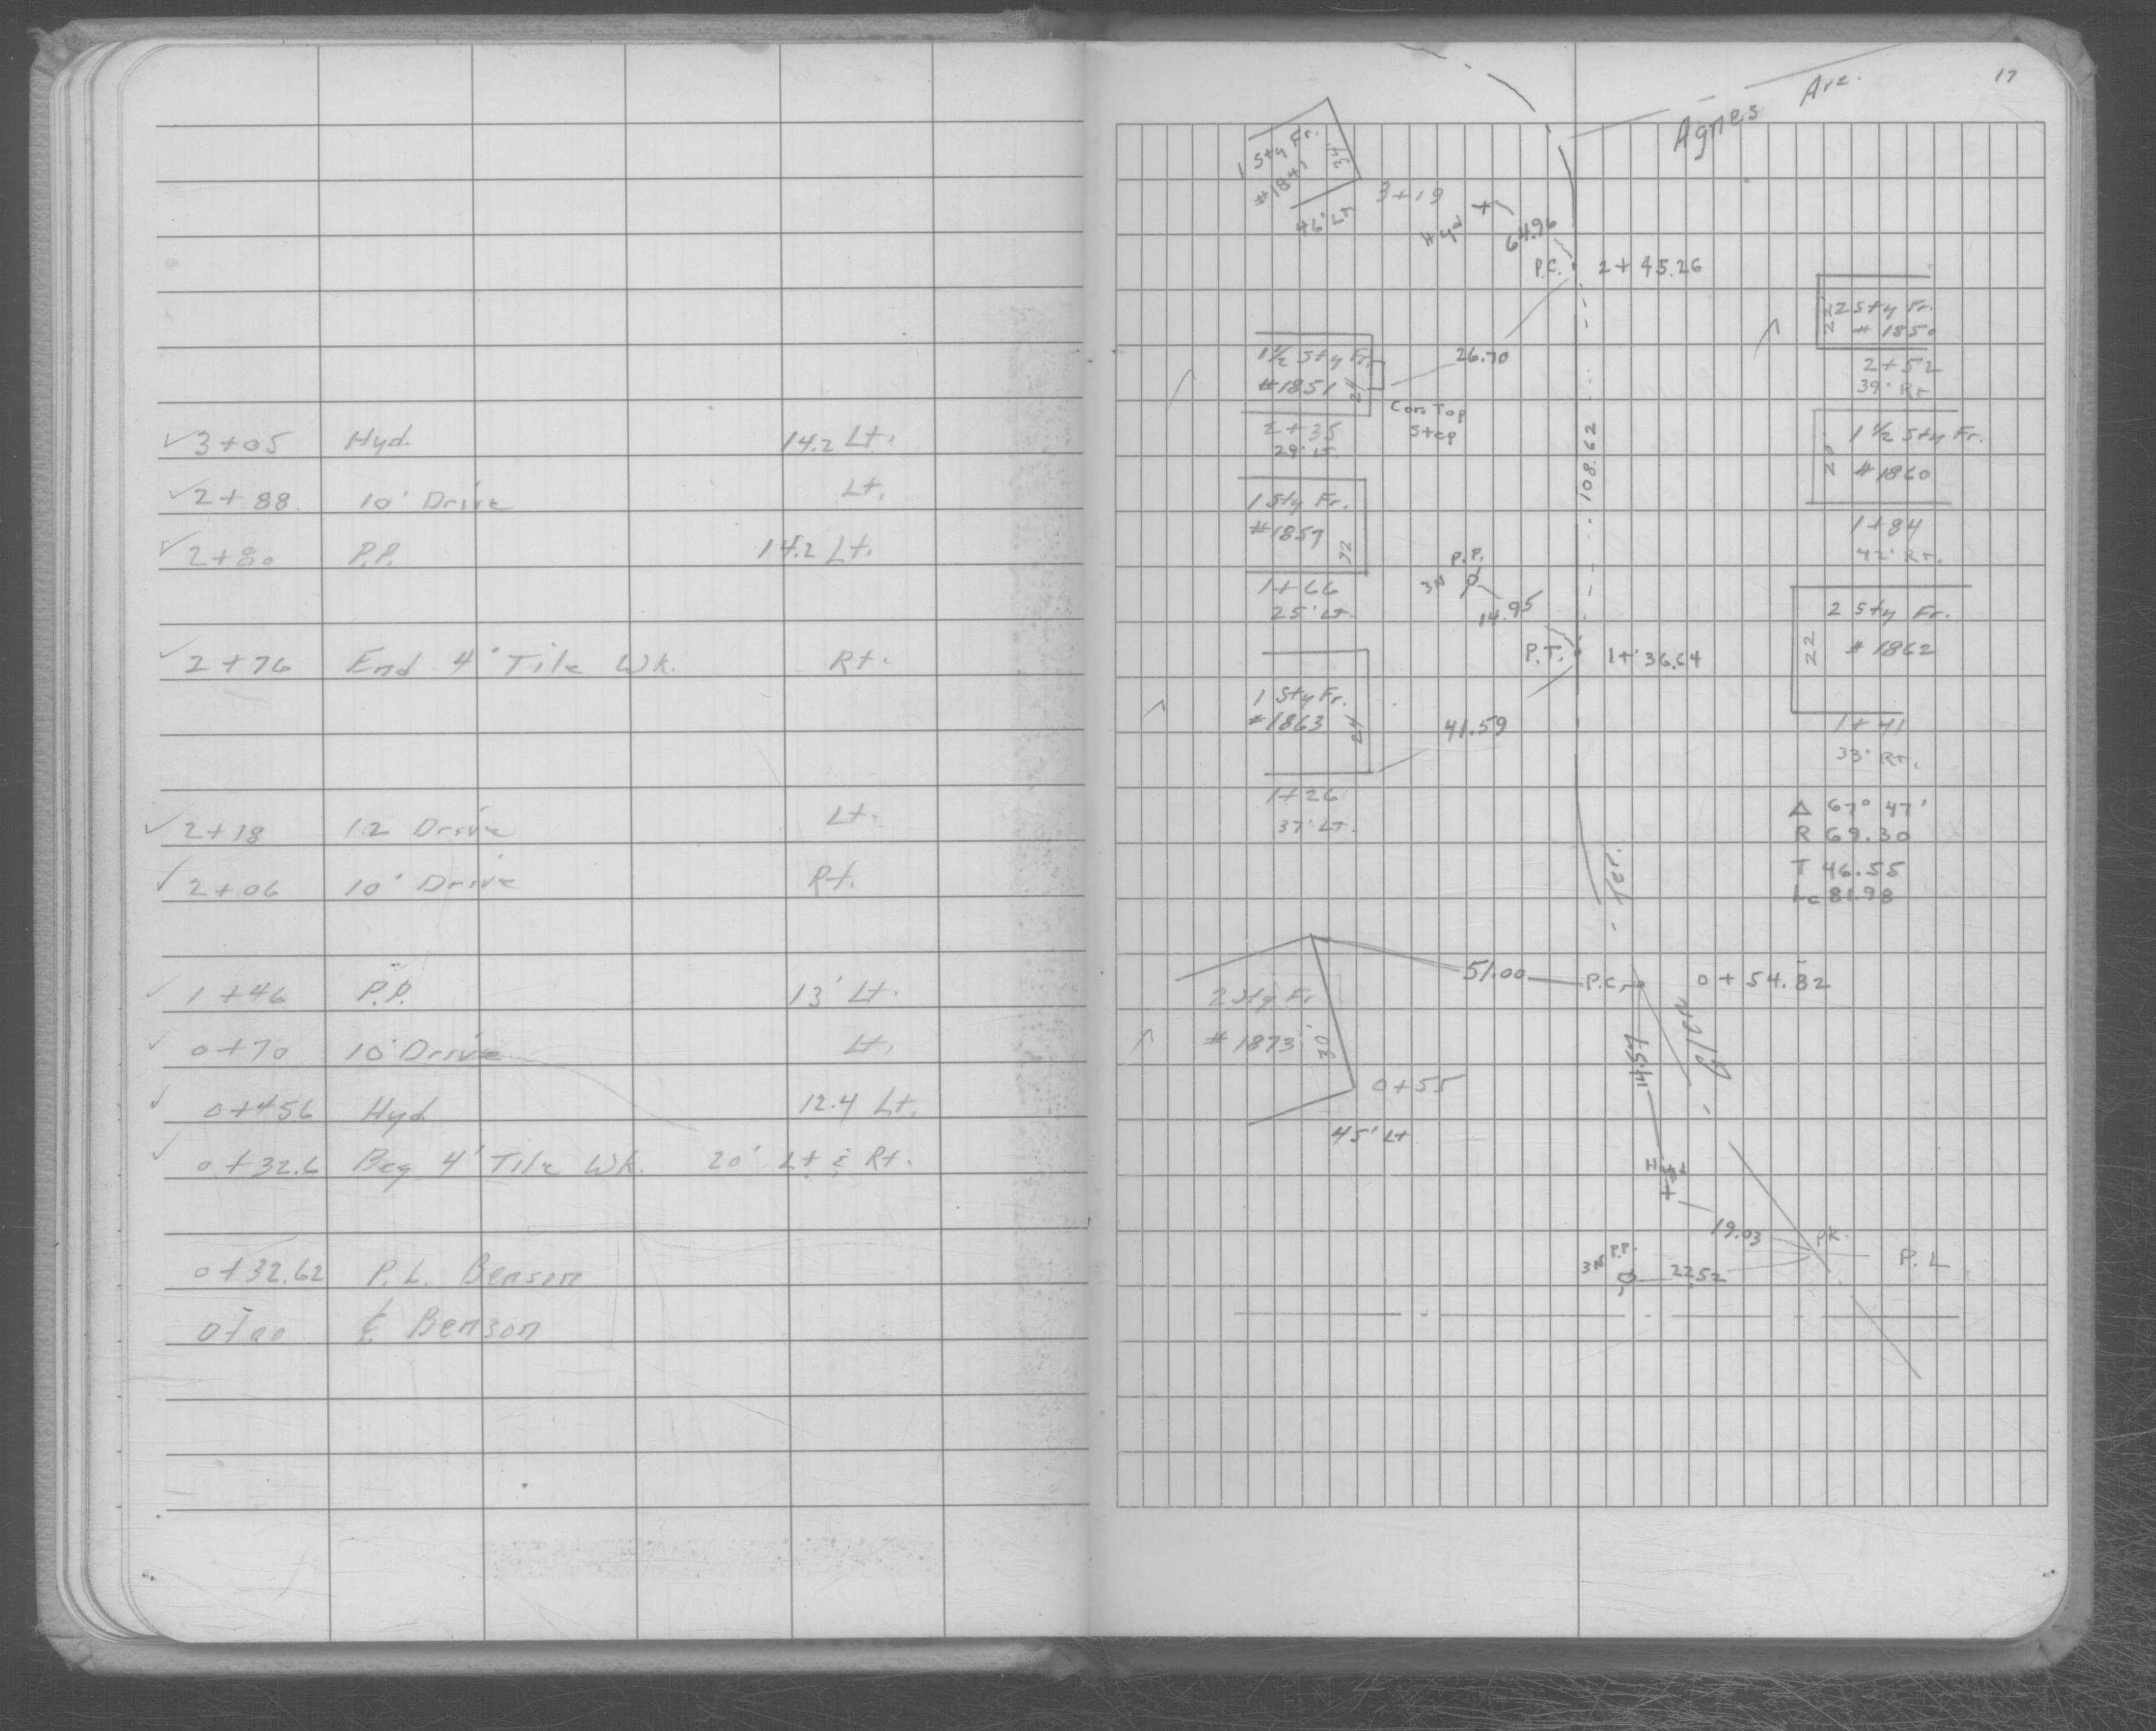 ✓ 3+05 Hyd. 14.2 Lt.
✓ 2+88 10' Drive Lt.
✓ 2+80 P.P. 14.2 Lt.
✓ 2+76 End 4' Tile Wk. Rt.
✓ 2+18 12 Drive Lt.
✓ 2+06 10' Drive Rt.
✓ 1+46 P.P. 13' Lt.
✓ 0+70 10' Drive Lt.
✓ 0+45.6 Hyd 12.4 Lt.
✓ 0+32.6 Beg 4' Tile Wk. 20' Lt & Rt.
0+32.62 P.L. Benson
0+00 ℄ Benson
17
Agnes Ave.
1 Sty Fr.
#1841
34'
46' Lt
3+19
Hyd
64.96
P.C. 2+45.26
2 Sty Fr.
# 1850
22'
2+52
39' Rt
1½ Sty Fr.
#1851
24
26.70
Con Top
Step
2+35
29' Lt.
108.62
1½ Sty Fr.
#1860
1+84
42' Rt.
1 Sty Fr.
#1857
32
1+66
25' Lt.
P.P.
3N
14.95
P.T. 1+36.64
2 Sty Fr.
# 1862
22
1+41
33' Rt.
1 Sty Fr.
#1863
24
41.59
1+26
37' Lt.
Δ 67° 47'
R 69.30
T 46.55
Lc 81.98
Ter.
51.00
P.C. 0+54.82
2 Sty Fr
# 1873
30'
0+55
45' Lt
14.57
Hyd
19.03
pk.
P.L
P.P.
3N
22.52